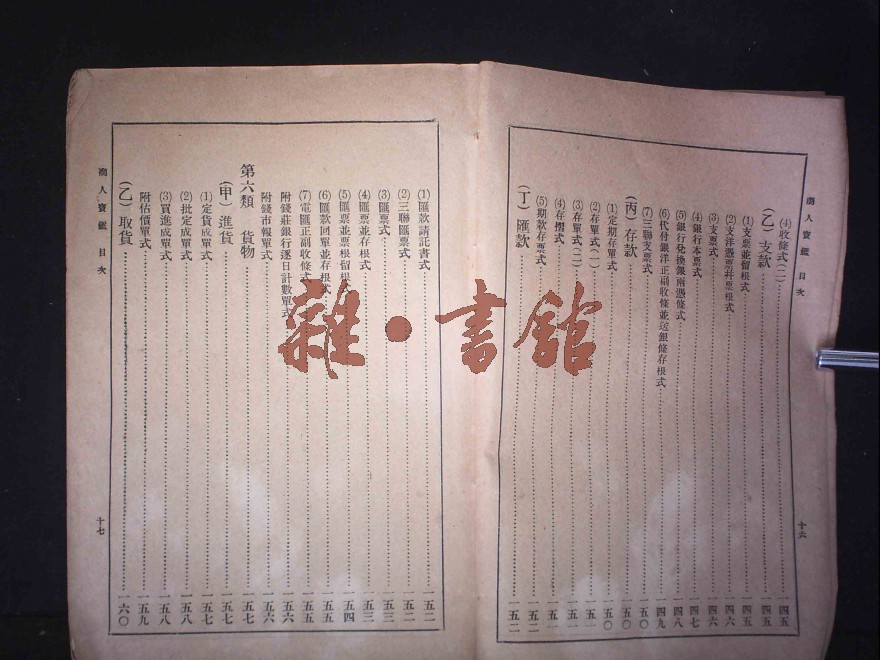 商人寶鑑 目次
(4)收條式(二)……一四五
(乙)支款……一四五
(1)支票並留根式……一四五
(2)支洋憑票并票根式……一四六
(3)支票式……一四六
(4)銀行本票式……一四七
(5)銀行兌換銀兩憑條式……一四八
(6)代付銀洋正副收條並送銀條存根式……一四九
(7)三聯支票式……一五〇
(丙)存款……一五〇
(1)定期存單式……一五〇
(2)存單式(一)……一五一
(3)存單式(二)……一五一
(4)存摺式……一五一
(5)期款存票式……一五二
(丁)匯款……一五二
十六
(1)匯款請託書式……一五二
(2)三聯匯票式……一五二
(3)匯票式……一五三
(4)匯票並存根式……一五三
(5)匯票並票根留根式……一五四
(6)匯款回單並存根式……一五五
(7)電匯正副收條式……一五五
附錢莊銀行逐日計數單式……一五六
附錢市報單式……一五六
第六類 貨物……一五七
(甲)進貨……一五七
(1)定貨成單式……一五七
(2)批定成單式……一五八
(3)買進成單式……一五八
附估價單式……一五九
(乙)取貨……一六〇
商人寶鑑 目次
十七
雜·書館